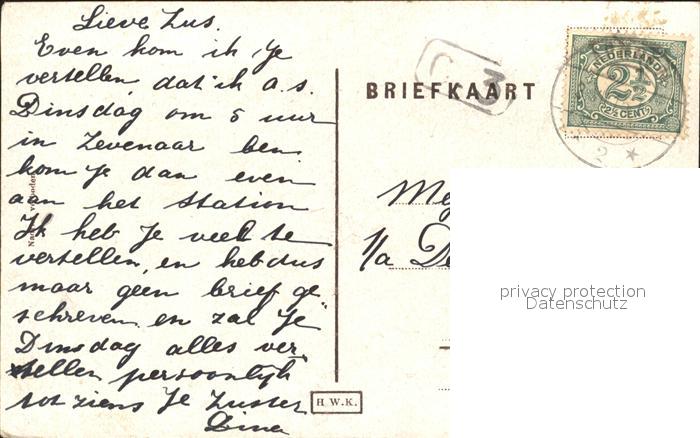 Lieve Zus.
Even kom ik Je
vertellen dat ik a.s.
Dinsdag om 5 uur
in Zevenaar ben
kom Je dan even
aan het station
Ik heb Je veel te
vertellen, en heb dus
maar geen brief ge
schreven en zal Je
Dinsdag alles ver-
tellen persoonlijk
tot ziens Je Zuster
Dina
C 3
BRIEFKAART
NEDERLAND
2½
2½ CENT
2 *
1/a
H.W.K.
privacy protection
Datenschutz